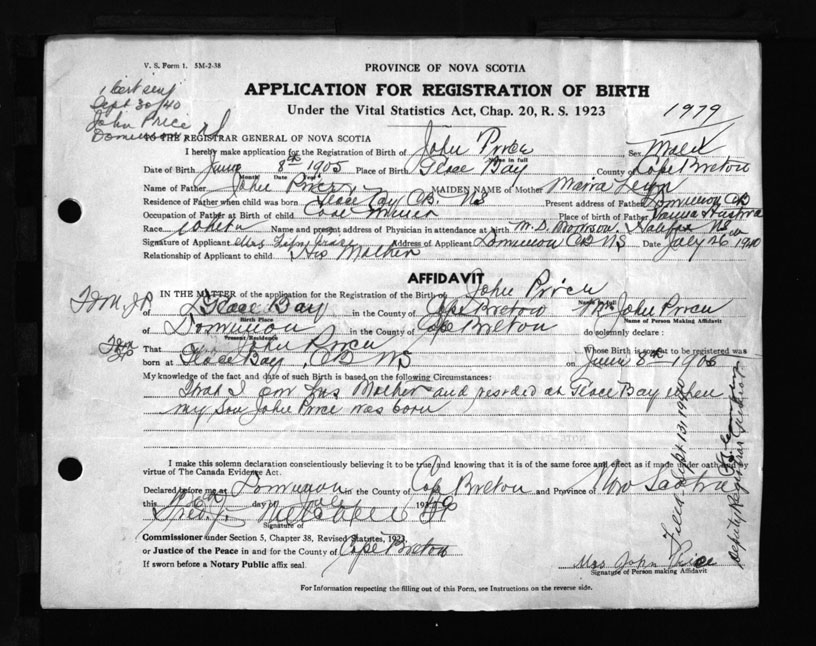 V. S. Form 1. 5M-2-38
PROVINCE OF NOVA SCOTIA
1 Cert sent
Sept 30/40
John Price
Dominion
APPLICATION FOR REGISTRATION OF BIRTH
Under the Vital Statistics Act, Chap. 20, R. S. 1923
1979
TO THE REGISTRAR GENERAL OF NOVA SCOTIA
I hereby make application for the Registration of Birth of John Price Sex Male
Name in full
Date of Birth June 8th 1905 Place of Birth Glace Bay County of Cape Breton
Month Date
Name of Father John Price MAIDEN NAME of Mother Maria
Residence of Father when child was born Glace Bay CB. NS Present address of Father Dominion CB
Occupation of Father at Birth of child Coal Miner Place of Birth of Father
Race Name and present address of Physician in attendance at birth M. D. Morrison. Halifax NS
Signature of Applicant Mrs Address of Applicant Dominion CB NS Date July 26 1940
Relationship of Applicant to child His Mother
AFFIDAVIT
IN THE MATTER of the application for the Registration of the Birth of John Price
Name in full
of Glace Bay in the County of Cape Breton Mrs John Price
Birth Place Name of Person Making Affidavit
of Dominion in the County of Cape Breton do solemnly declare :
Present Residence
That John Price Whose Birth is sought to be registered was
born at Glace Bay, CB NS on June 8th 1905
My knowledge of the fact and date of such Birth is based on the following Circumstances:
That I am his Mother and resided at Glace Bay when
my son John Price was born
I make this solemn declaration conscientiously believing it to be true, and knowing that it is of the same force and effect as if made under oath and by
virtue of The Canada Evidence Act.
Declared before me at Dominion in the County of Cape Breton and Province of Nova Scotia
this day of July 19
Signature of
Commissioner under Section 5, Chapter 38, Revised Statutes, 1923
or Justice of the Peace in and for the County of Cape Breton
If sworn before a Notary Public affix seal.
Mrs John Price
Signature of Person making Affidavit
For Information respecting the filling out of this Form, see Instructions on the reverse side.
Filed Sept 13 1940
Deputy Registrar General